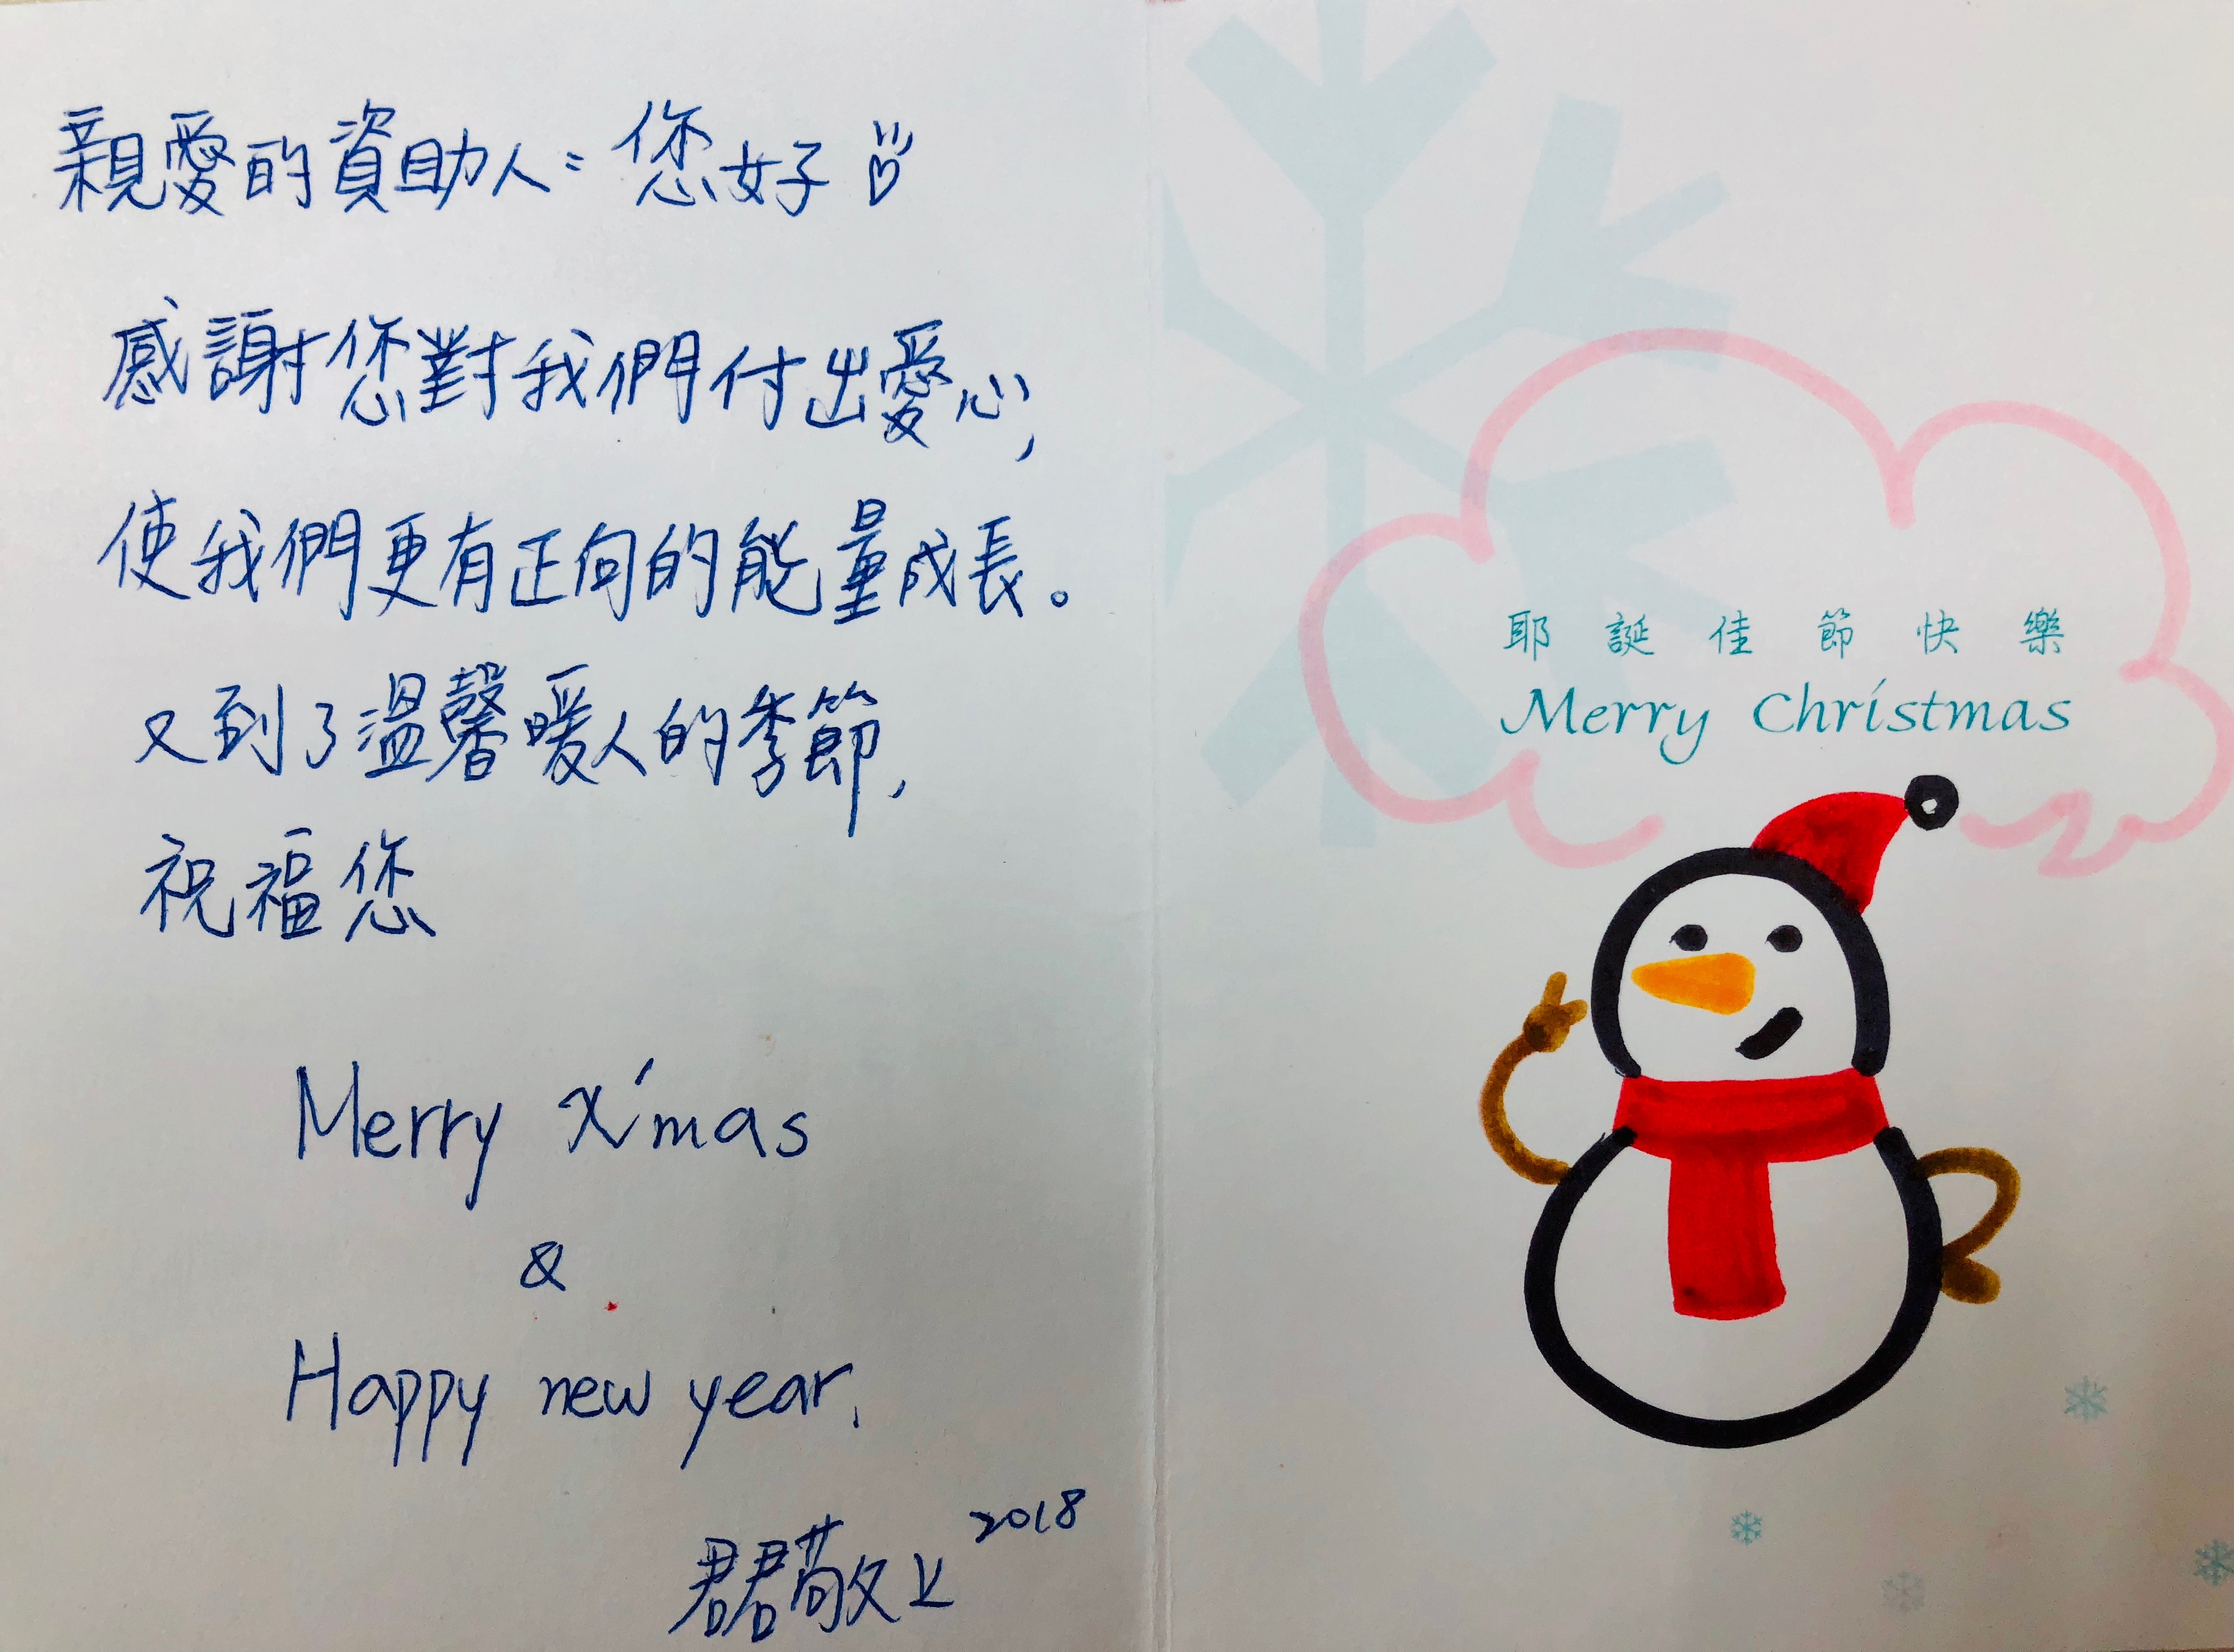 親愛的資助人：您好
感謝您對我們付出愛心，
使我們更有正向的能量成長。
又到了溫馨暖人的季節，
祝福您
Merry X'mas
&
Happy new year.
君君敬上 2018
耶誕佳節快樂
Merry Christmas